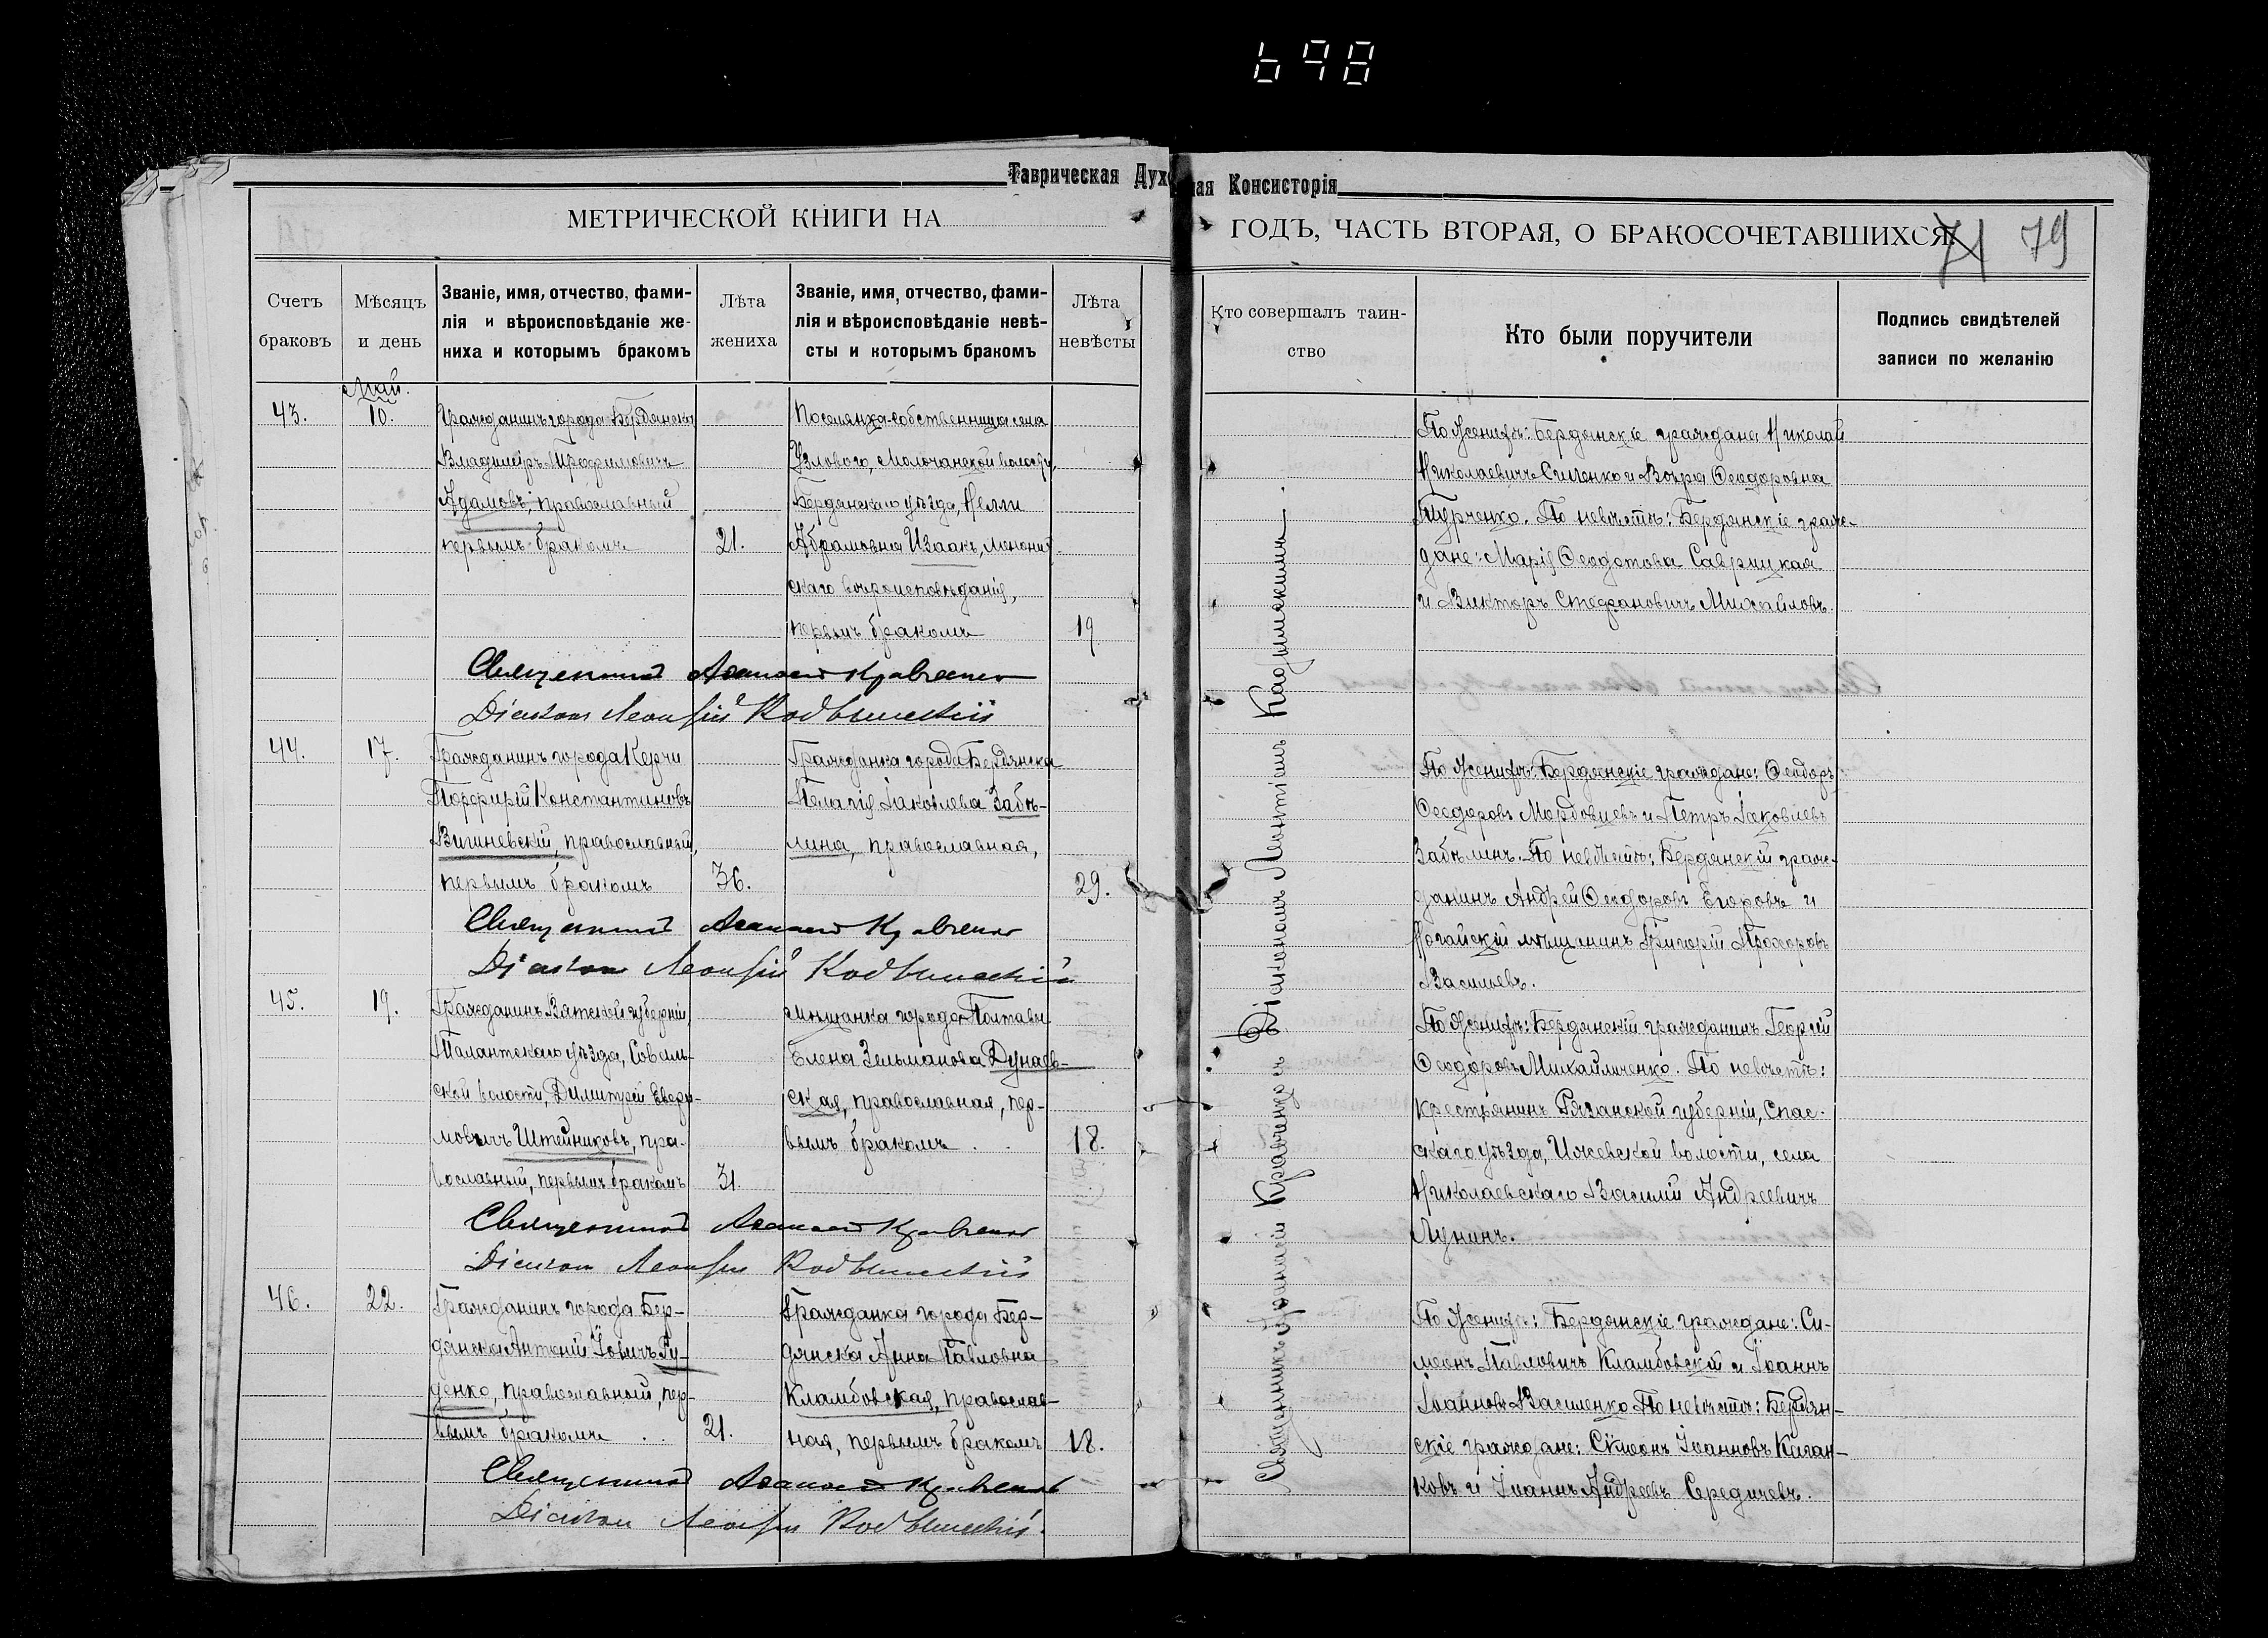 698
Таврическая Духовная Консисторія
МЕТРИЧЕСКОЙ КНИГИ НА ГОДЪ, ЧАСТЬ ВТОРАЯ, О БРАКОСОЧЕТАВШИХСЯ
71 79
Счетъ браковъ
Мѣсяцъ и день
Званіе, имя, отчество, фами-
лія и вѣроисповѣданіе же-
ниха и которымъ бракомъ
Лѣта жениха
Званіе, имя, отчество, фами-
лія и вѣроисповѣданіе невѣ-
сты и которымъ бракомъ
Лѣта невѣсты
Кто совершалъ таин-
ство
Кто были поручители
Подпись свидѣтелей
записи по желанію
Май.
43.
10.
Гражданинъ города Бердянска
Владиміръ Трофимовичъ
Адамовъ, православный
первымъ бракомъ
21.
Поселянка-собственница села
Узлового, Молочанской волости,
Бердянскаго уѣзда, Нелли
Абрамовна Изаакъ, менонит
скаго вѣроисповѣданія,
первымъ бракомъ
19
По женихѣ: Бердянскіе граждане Николай
Николаевичъ Сиченко и Вѣра Ѳеодоровна
Турченко. По невѣстѣ: Бердянскіе граж-
дане: Марія Ѳеодотова Саврицкая
и Викторъ Стефановичъ Михайловъ.
Священникъ Аѳанасій Кравченко
Діаконъ Леонтій Кадыменскій
44.
17.
Гражданинъ города Керчи
Порфирій Константиновъ
Вишневскій, православный,
первымъ бракомъ
36.
Гражданка города Бердянска
Пелагія Іаковлева Забѣ-
лина, православная,
29.
По женихѣ: Бердянскіе граждане: Ѳеодоръ
Ѳеодоровъ Мордовцевъ и Петръ Іаковлевъ
Забѣлинъ. По невѣстѣ: Бердянскій граж-
данинъ Андрей Ѳеодоровъ Егоровъ и
Ногайскій мѣщанинъ Григорій Прохоровъ
Васильевъ.
Священникъ Аѳанасій Кравченко
Діаконъ Леонтій
45.
19.
Гражданинъ Вятской губерніи,
уѣзда,
ской волости, Димитрій
мовичъ Штейниковъ, пра-
вославный, первымъ бракомъ
31.
мѣщанка города Полтавы
Елена Зельманова Дунаев-
ская, православная, пер-
вымъ бракомъ
18.
По женихѣ: Бердянскій гражданинъ Георгій
Ѳеодоровъ Михайличенко. По невѣстѣ:
крестьянинъ Рязанской губерніи, Спас-
скаго уѣзда, Ижевской волости, села
Николаевскаго Василій Андреевичъ
Лунинъ.
Священникъ Аѳанасій Кравченко
Діаконъ Леонтій
46.
22.
Гражданинъ города Бер-
дянска Антоній Іовичъ Ру-
денко, православный, пер-
вымъ бракомъ
21.
Гражданка города Бер-
дянска Анна Павловна
Кламбовская, православ-
ная, первымъ бракомъ
18.
По женихѣ: Бердянскіе граждане: Си-
меонъ Павловичъ Кламбовскій и Іоаннъ
Іоанновъ Василенко. По невѣстѣ: Бердян-
скіе граждане: Симеонъ Іоанновъ Каган-
ковъ и Іоаннъ Андреевъ Середичевъ.
Священникъ Аѳанасій Кравченко
Діаконъ Леонтій
Священникъ Аѳанасій Кравченко съ Діакономъ Леонтіемъ